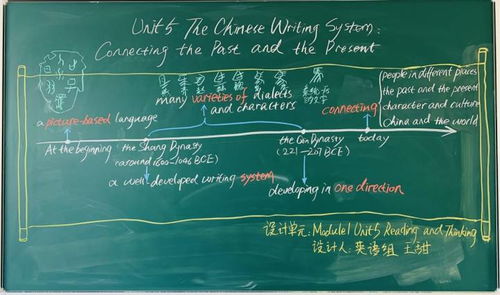 Unit 5 The Chinese Writing System:
Connecting the Past and the Present
many varieties of dialects
and characters
people in different places
the past and the present
character and culture
China and the world
connecting
a picture-based language
At the beginning
the Shang Dynasty
(around 1600-1046 BCE)
the Qin Dynasty
(221-207 BCE)
today
a well-developed writing system
developing in one direction
设计单元: Module1 Unit5 Reading and Thinking
设计人: 英语组 王甜